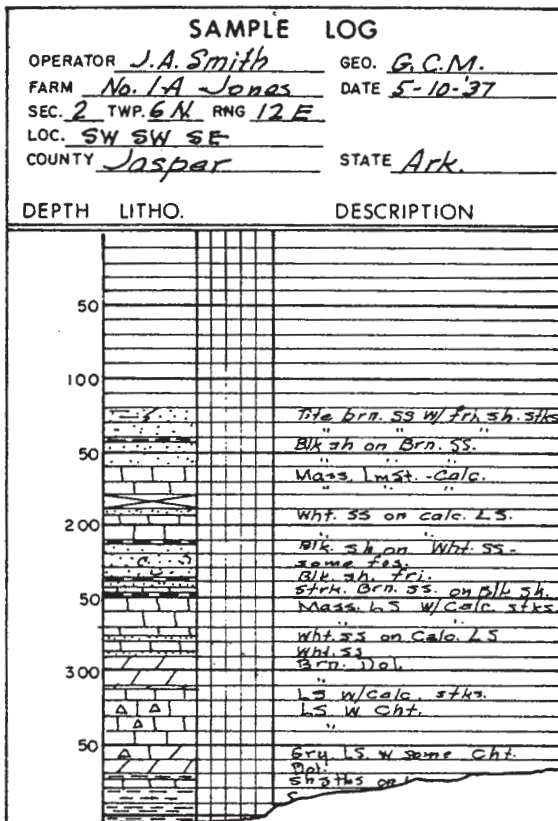 SAMPLE LOG
OPERATOR J.A. Smith GEO. G.C.M.
FARM No. 1-A Jones DATE 5-10-'37
SEC. 2 TWP. 6 N. RNG 12 E
LOC. SW SW SE
COUNTY Jasper STATE Ark.
DEPTH LITHO. DESCRIPTION
50
100
Tite brn. SS w/ fri. sh. stks
" " "
50 Blk sh on Brn. SS.
" " "
Mass. Lmst. - Calc.
" " "
Wht. SS on calc. LS.
200
Blk. sh on Wht. SS -
some fos.
Blk. sh. fri.
Strk. Brn. ss. on Blk sh.
50 Mass. LS w/Calc stks.
" "
Wht. ss on Calc. LS
Wht. SS
Brn. Dol.
300 "
LS w/Calc. stks.
LS w Cht.
"
50 Gry LS. w some Cht.
Dol.
on